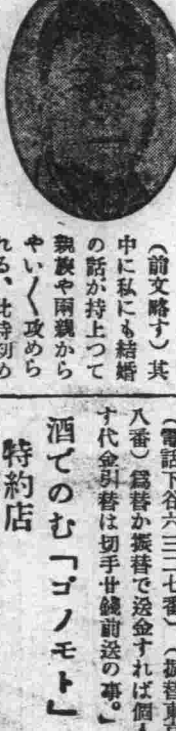 (前文略す)其
中に私にも結婚
の話が持上つて
親族や両親から
やい〱攻めら
れる、此時初め
(電話下谷六三二七番)(振替東京
八番)爲替か振替で送金すれば個人
す代金引替は切手廿錢前送の事。」
酒でのむ「ゴノモト」
特約店